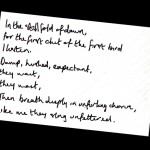 In the stillfold of dawn,
for the first chet of the first bird
I listen.
Damp, hushed, expectant,
they wait,
they wait,
Then breath deeply in unfurling chorus,
like me they song unfettered.